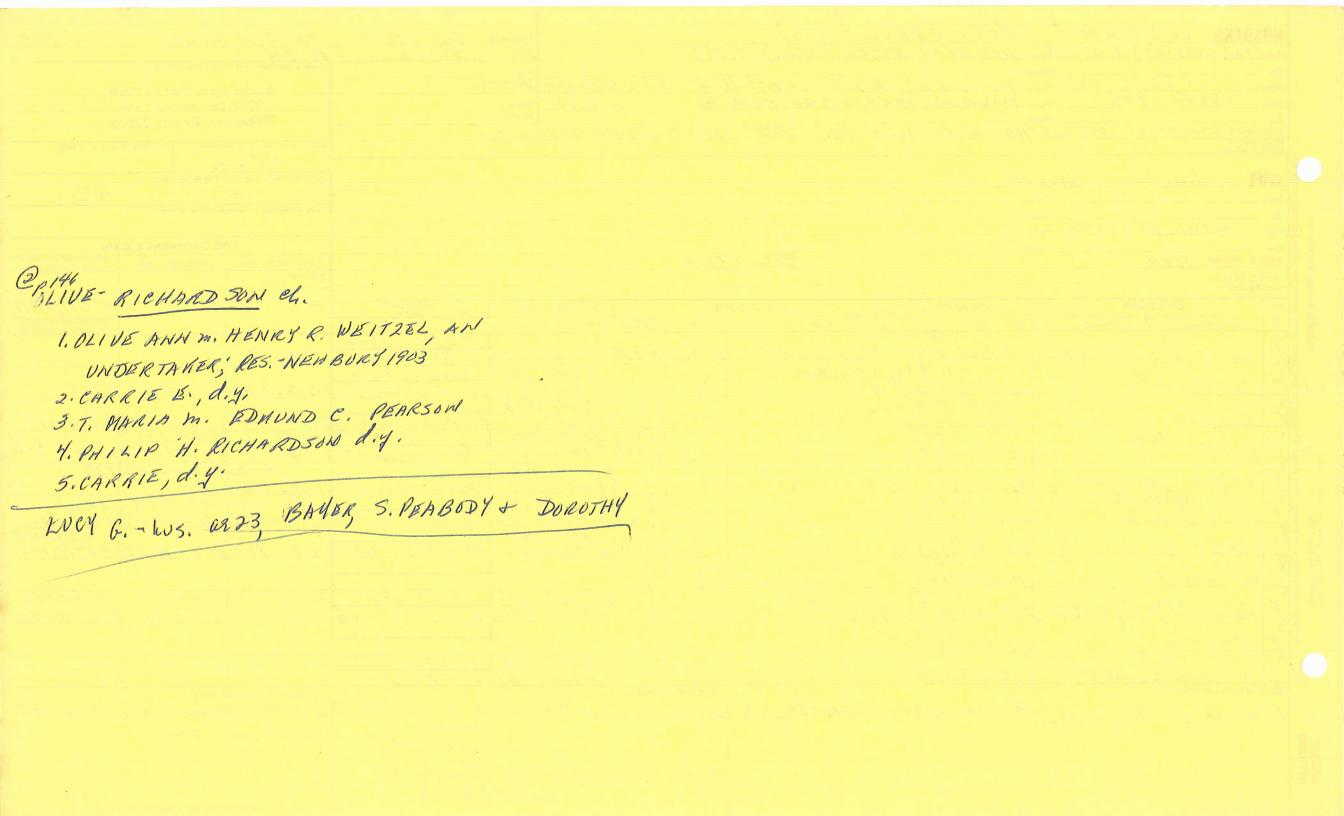 @ P.146
OLIVE- RICHARDSON ch.
1. OLIVE ANN m. HENRY R. WEITZEL, AN
UNDERTAKER; RES.-NEWBURY 1903
2. CARRIE E., d.y.
3. T. MARIA m. EDMUND C. PEARSON
4. PHILIP H. RICHARDSON d.y.
5. CARRIE, d.y.
LUCY G. - hus. BAYER, S. PEABODY & DOROTHY